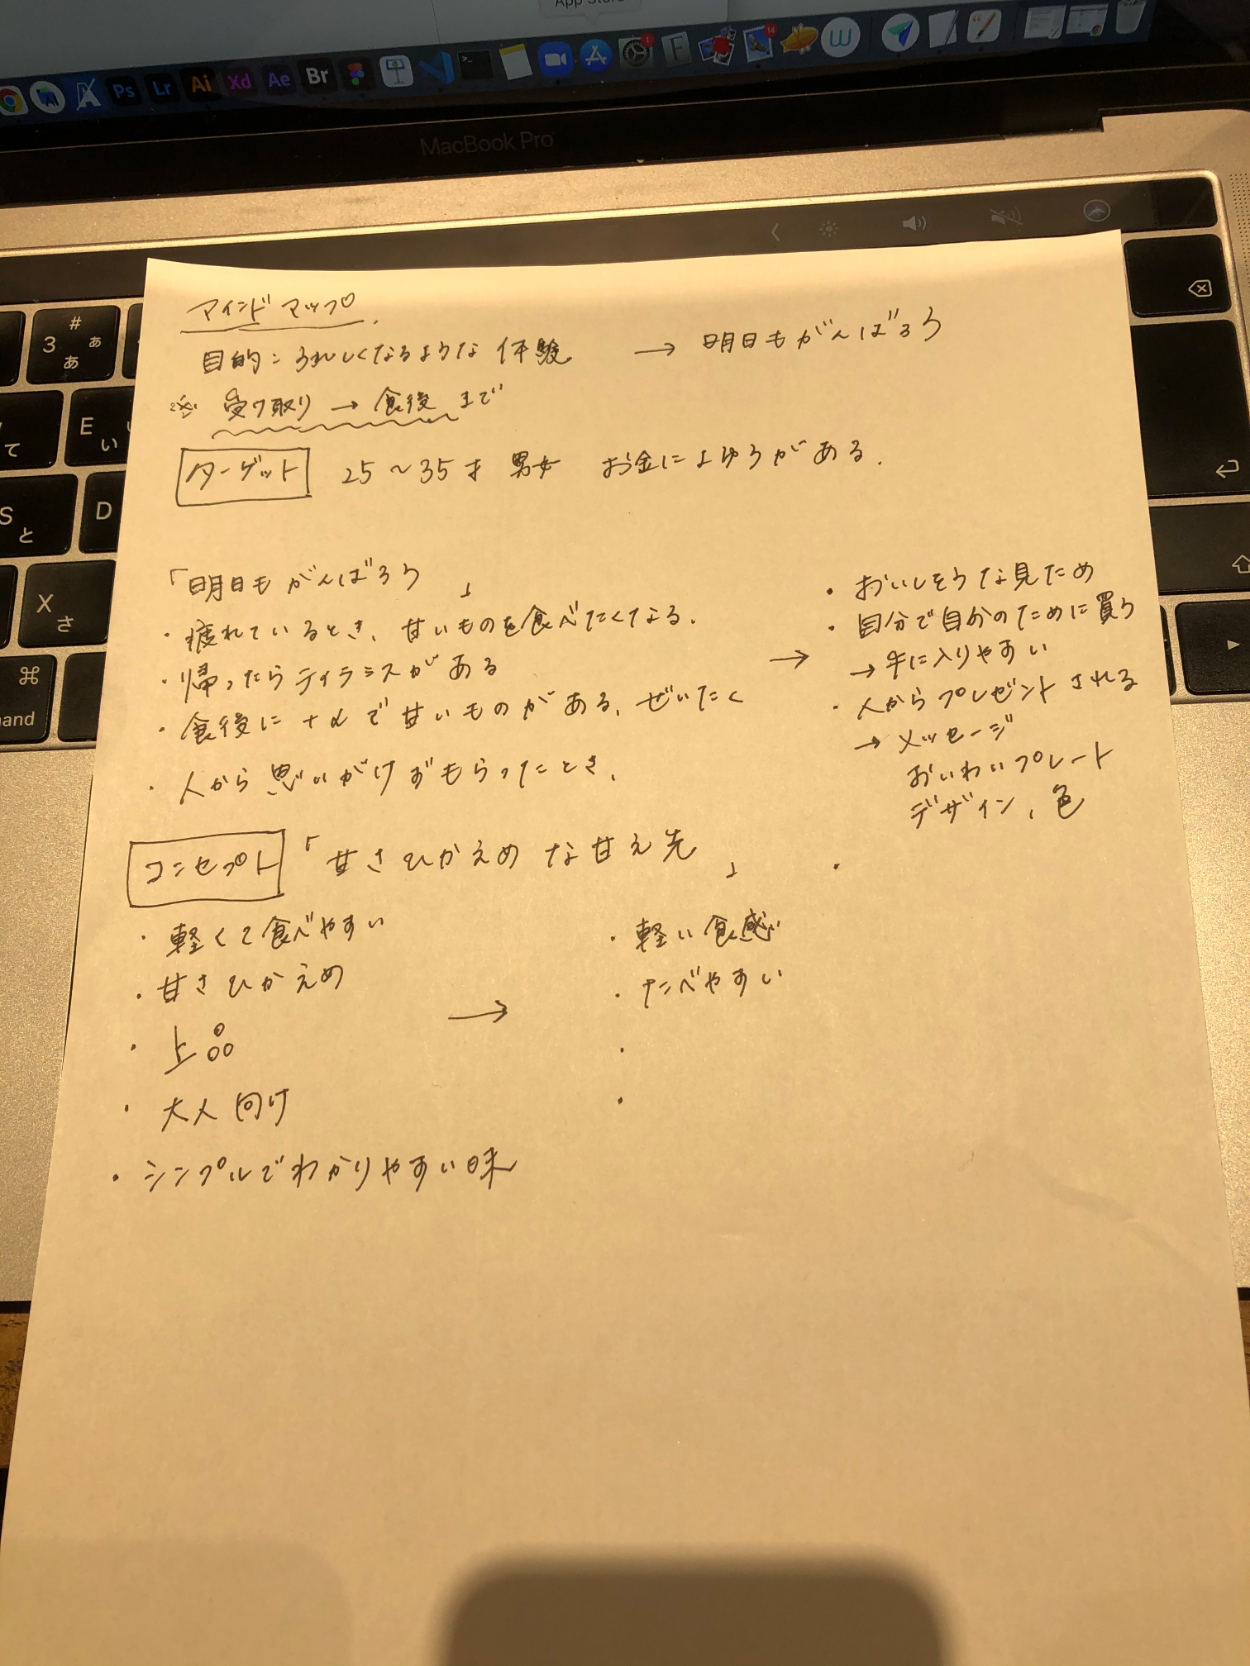 App Store
Ps Lr Ai Xd Ae Br
MacBook Pro
マインドマップ
目的：うれしくなるような体験 → 明日もがんばろう
※ 受け取り → 食後 まで
ターゲット 25～35才 男女 お金によゆうがある.
「明日もがんばろう 」
・疲れているとき、甘いものを食べたくなる.
・帰ったらティラミスがある
・食後に+αで甘いものがある、ぜいたく
・人から思いがけずもらったとき、
→
・おいしそうな見ため
・自分で自分のために買う
→ 手に入りやすい
・人からプレゼントされる
→ メッセージ
おいわいプレート
デザイン、色
・
コンセプト 「甘さひかえめな甘え先 」
・軽くて食べやすい
・甘さひかえめ
・上品
・大人向け
・シンプルでわかりやすい味
→
・軽い食感
・たべやすい
・
・
# 3 ぁ あ
E い
て
S と
D
X さ
⌘
mand